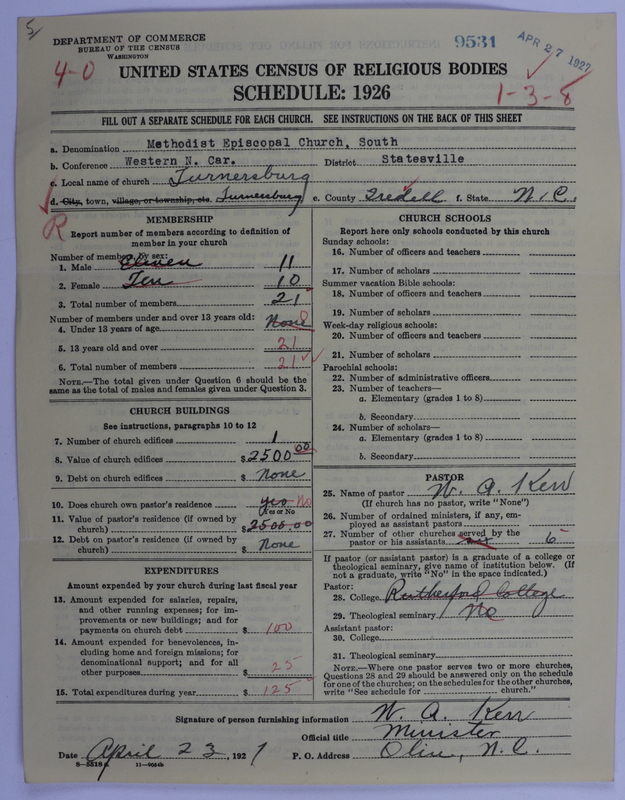 5/
DEPARTMENT OF COMMERCE
BUREAU OF THE CENSUS
WASHINGTON
9531
APR 27 1927
4-0
UNITED STATES CENSUS OF RELIGIOUS BODIES
SCHEDULE: 1926
1-3-8
FILL OUT A SEPARATE SCHEDULE FOR EACH CHURCH. SEE INSTRUCTIONS ON THE BACK OF THIS SHEET
a. Denomination Methodist Episcopal Church, South
b. Conference Western N. Car. District Statesville
c. Local name of church Turnersburg
d. City, town, village, or township, etc. Turnersburg e. County Iredell f. State N.C.
R
MEMBERSHIP
Report number of members according to definition of member in your church
Number of members by sex:
1. Male Eleven 11
2. Female Ten 10
3. Total number of members 21
Number of members under and over 13 years old:
4. Under 13 years of age None 0
5. 13 years old and over 21
6. Total number of members 21
NOTE.—The total given under Question 6 should be the same as the total of males and females given under Question 3.
CHURCH BUILDINGS
See instructions, paragraphs 10 to 12
7. Number of church edifices 1
8. Value of church edifices $ 2500.00
9. Debt on church edifices $ None
10. Does church own pastor's residence yes No
Yes or No
11. Value of pastor's residence (if owned by church) $ 2500.00
12. Debt on pastor's residence (if owned by church) $ None
EXPENDITURES
Amount expended by your church during last fiscal year
13. Amount expended for salaries, repairs, and other running expenses; for improvements or new buildings; and for payments on church debt $ 100
14. Amount expended for benevolences, including home and foreign missions; for denominational support; and for all other purposes $ 25
15. Total expenditures during year $ 125
CHURCH SCHOOLS
Report here only schools conducted by this church
Sunday schools:
16. Number of officers and teachers
17. Number of scholars
Summer vacation Bible schools:
18. Number of officers and teachers
19. Number of scholars
Week-day religious schools:
20. Number of officers and teachers
21. Number of scholars
Parochial schools:
22. Number of administrative officers
23. Number of teachers—
a. Elementary (grades 1 to 8)
b. Secondary
24. Number of scholars—
a. Elementary (grades 1 to 8)
b. Secondary
PASTOR
25. Name of pastor W. A. Kerr
(If church has no pastor, write "None")
26. Number of ordained ministers, if any, employed as assistant pastors
27. Number of other churches served by the pastor or his assistants 6
If pastor (or assistant pastor) is a graduate of a college or theological seminary, give name of institution below. (If not a graduate, write "No" in the space indicated.)
Pastor:
28. College Rutherford College
29. Theological seminary No
Assistant pastor:
30. College
31. Theological seminary
NOTE.—Where one pastor serves two or more churches, Questions 28 and 29 should be answered only on the schedule for one of the churches; on the schedules for the other churches, write "See schedule for church."
Signature of person furnishing information W. A. Kerr
Official title Minister
Date April 23, 1927 P. O. Address Olin, N.C.